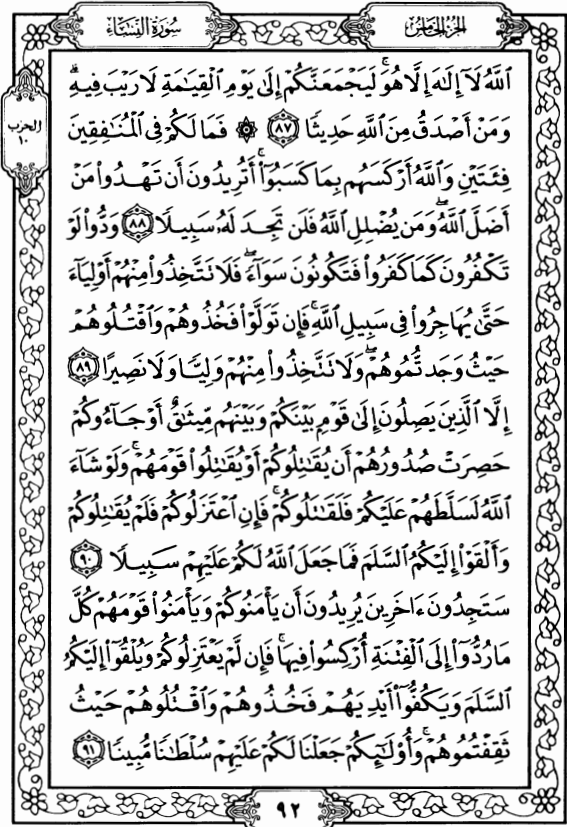 سُورَةُ النِّسَاءِ
الجُزْءُ الخَامِسُ
الحزب
١٠
اللَّهُ لَآ إِلَٰهَ إِلَّا هُوَۚ لَيَجْمَعَنَّكُمْ إِلَىٰ يَوْمِ الْقِيَٰمَةِ لَا رَيْبَ فِيهِۗ
وَمَنْ أَصْدَقُ مِنَ اللَّهِ حَدِيثًا ٨٧ ۞ فَمَا لَكُمْ فِي الْمُنَٰفِقِينَ
فِئَتَيْنِ وَاللَّهُ أَرْكَسَهُم بِمَا كَسَبُوٓا۟ۚ أَتُرِيدُونَ أَن تَهْدُوا۟ مَنْ
أَضَلَّ اللَّهُۖ وَمَن يُضْلِلِ اللَّهُ فَلَن تَجِدَ لَهُۥ سَبِيلًا ٨٨ وَدُّوا۟ لَوْ
تَكْفُرُونَ كَمَا كَفَرُوا۟ فَتَكُونُونَ سَوَآءًۖ فَلَا تَتَّخِذُوا۟ مِنْهُمْ أَوْلِيَآءَ
حَتَّىٰ يُهَاجِرُوا۟ فِي سَبِيلِ اللَّهِۚ فَإِن تَوَلَّوْا۟ فَخُذُوهُمْ وَاقْتُلُوهُمْ
حَيْثُ وَجَدتُّمُوهُمْۖ وَلَا تَتَّخِذُوا۟ مِنْهُمْ وَلِيًّا وَلَا نَصِيرًا ٨٩
إِلَّا الَّذِينَ يَصِلُونَ إِلَىٰ قَوْمٍۭ بَيْنَكُمْ وَبَيْنَهُم مِّيثَٰقٌ أَوْ جَآءُوكُمْ
حَصِرَتْ صُدُورُهُمْ أَن يُقَٰتِلُوكُمْ أَوْ يُقَٰتِلُوا۟ قَوْمَهُمْۚ وَلَوْ شَآءَ
اللَّهُ لَسَلَّطَهُمْ عَلَيْكُمْ فَلَقَٰتَلُوكُمْۚ فَإِنِ اعْتَزَلُوكُمْ فَلَمْ يُقَٰتِلُوكُمْ
وَأَلْقَوْا۟ إِلَيْكُمُ السَّلَمَ فَمَا جَعَلَ اللَّهُ لَكُمْ عَلَيْهِمْ سَبِيلًا ٩٠
سَتَجِدُونَ ءَاخَرِينَ يُرِيدُونَ أَن يَأْمَنُوكُمْ وَيَأْمَنُوا۟ قَوْمَهُمْ كُلَّ
مَا رُدُّوٓا۟ إِلَى الْفِتْنَةِ أُرْكِسُوا۟ فِيهَاۚ فَإِن لَّمْ يَعْتَزِلُوكُمْ وَيُلْقُوٓا۟ إِلَيْكُمُ
السَّلَمَ وَيَكُفُّوٓا۟ أَيْدِيَهُمْ فَخُذُوهُمْ وَاقْتُلُوهُمْ حَيْثُ
ثَقِفْتُمُوهُمْۚ وَأُو۟لَٰٓئِكُمْ جَعَلْنَا لَكُمْ عَلَيْهِمْ سُلْطَٰنًا مُّبِينًا ٩١
٩٢